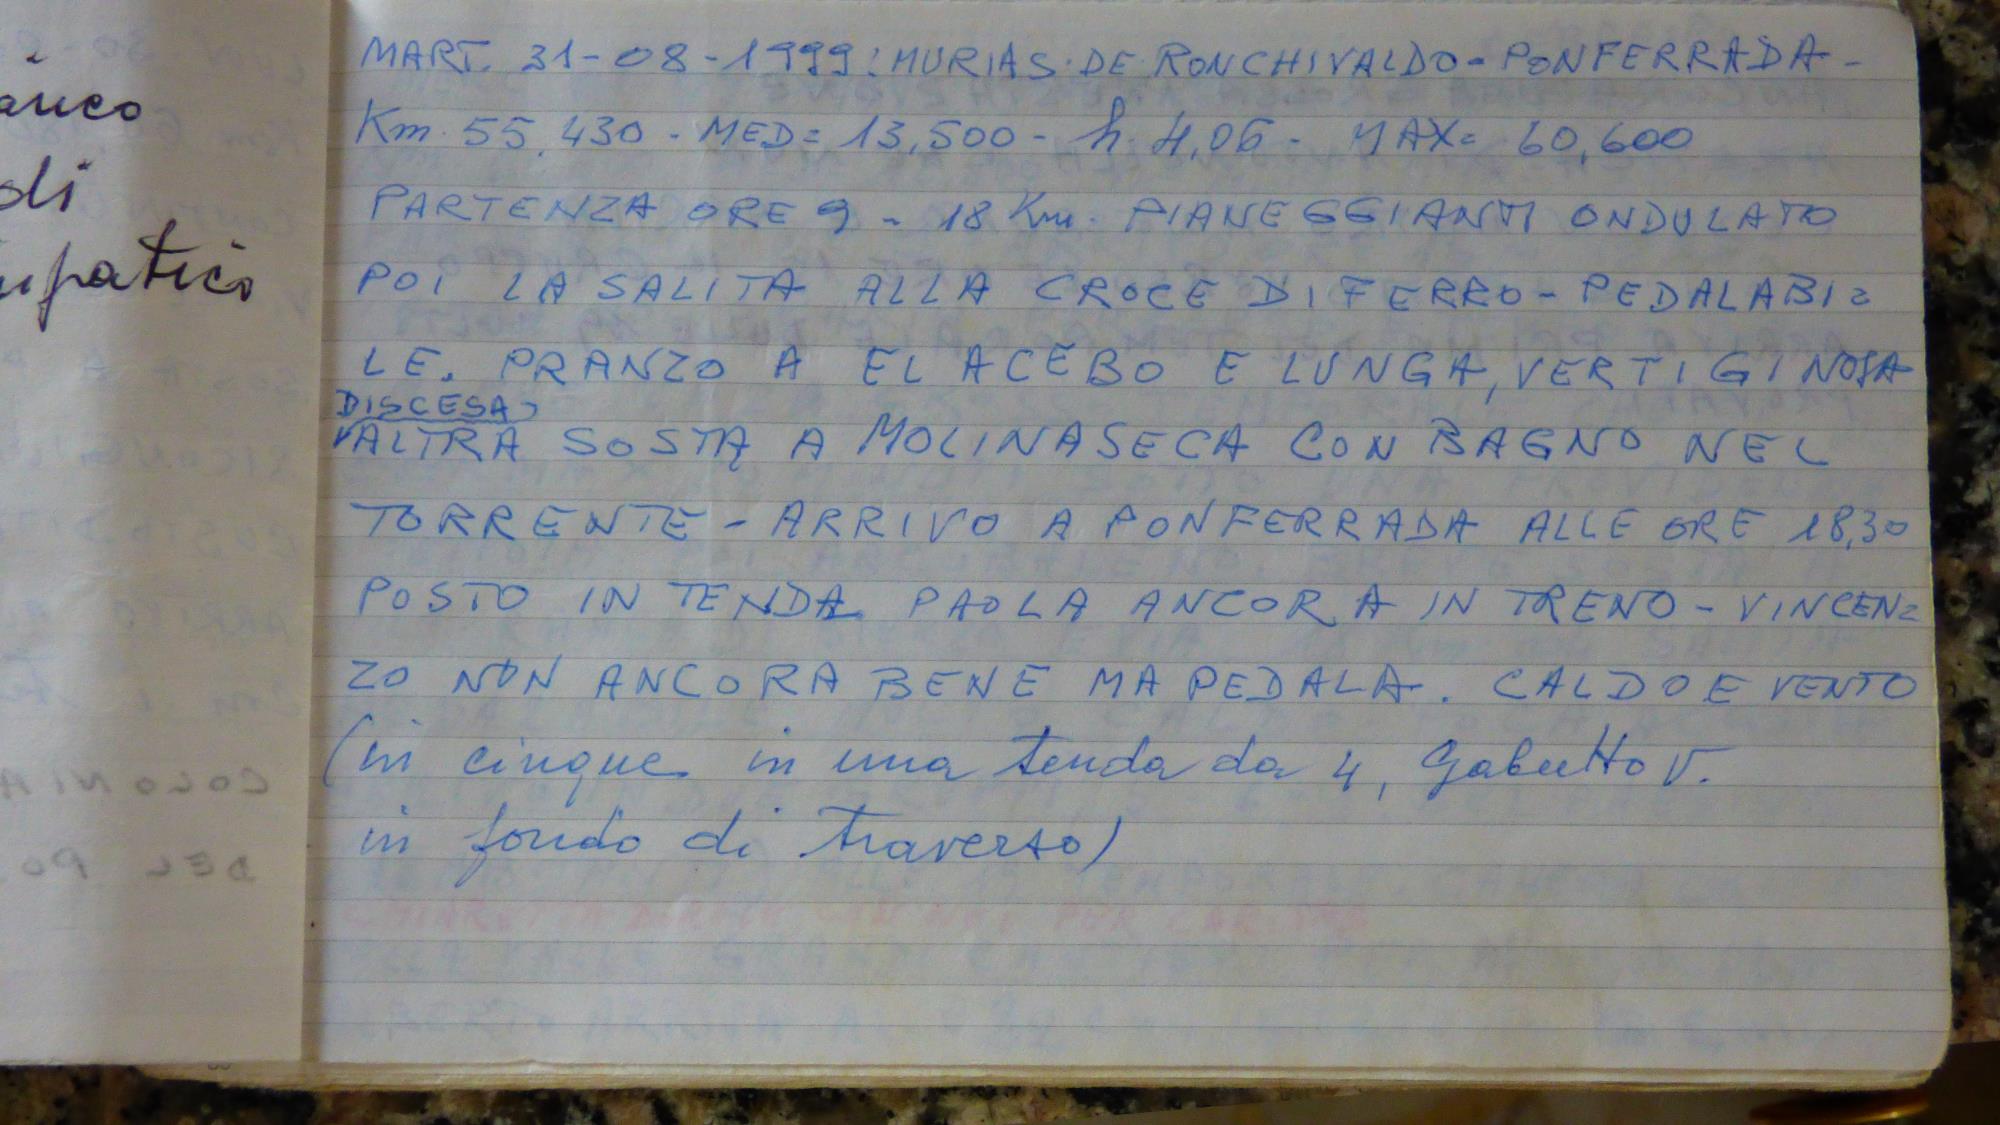 anco
di
MART. 31-08-1999: MURIAS DE RONCHIVALDO-PONFERRADA-
Km. 55,430 - MED= 13,500 - h 4,06 - MAX= 60,600
PARTENZA ORE 9 - 18 Km. PIANEGGIANTI ONDULATO
POI LA SALITA ALLA CROCE DI FERRO-PEDALABI=
LE. PRANZO A EL ACEBO E LUNGA, VERTIGINOSA
DISCESA,
ALTRA SOSTA A MOLINASECA CON BAGNO NEL
TORRENTE - ARRIVO A PONFERRADA ALLE ORE 18,30
POSTO IN TENDA PAOLA ANCORA IN TRENO - VINCEN=
ZO NON ANCORA BENE MA PEDALA. CALDO E VENTO
(in cinque in una tenda da 4, Gabutto V.
in fondo di traverso)